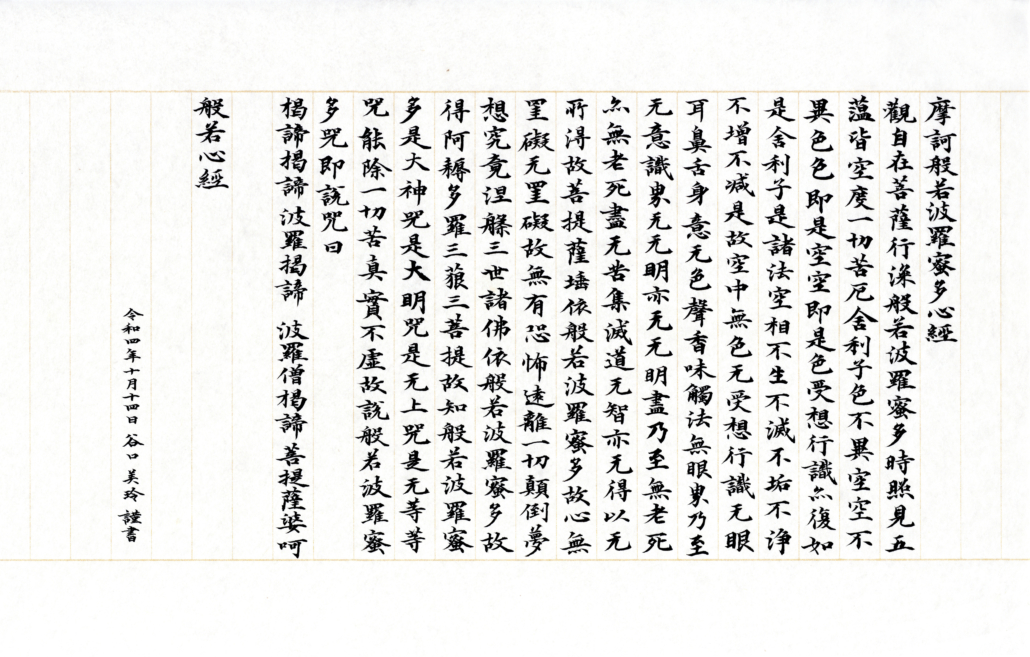 摩訶般若波羅蜜多心經
觀自在菩薩行深般若波羅蜜多時照見五
蘊皆空度一切苦厄舍利子色不異空空不
異色色即是空空即是色受想行識亦復如
是舍利子是諸法空相不生不滅不垢不淨
不增不減是故空中無色无受想行識无眼
耳鼻舌身意无色聲香味觸法無眼界乃至
无意識界无无明亦无无明盡乃至無老死
亦無老死盡无苦集滅道无智亦无得以无
所得故菩提薩埵依般若波羅蜜多故心無
罣礙无罣礙故無有恐怖遠離一切顛倒夢
想究竟涅槃三世諸佛依般若波羅蜜多故
得阿耨多羅三藐三菩提故知般若波羅蜜
多是大神咒是大明咒是无上咒是无等等
咒能除一切苦真實不虛故說般若波羅蜜
多咒即說咒曰
揭諦揭諦 波羅揭諦 波羅僧揭諦 菩提薩婆呵
般若心經
令和四年十月十四日 谷口 美玲 謹書